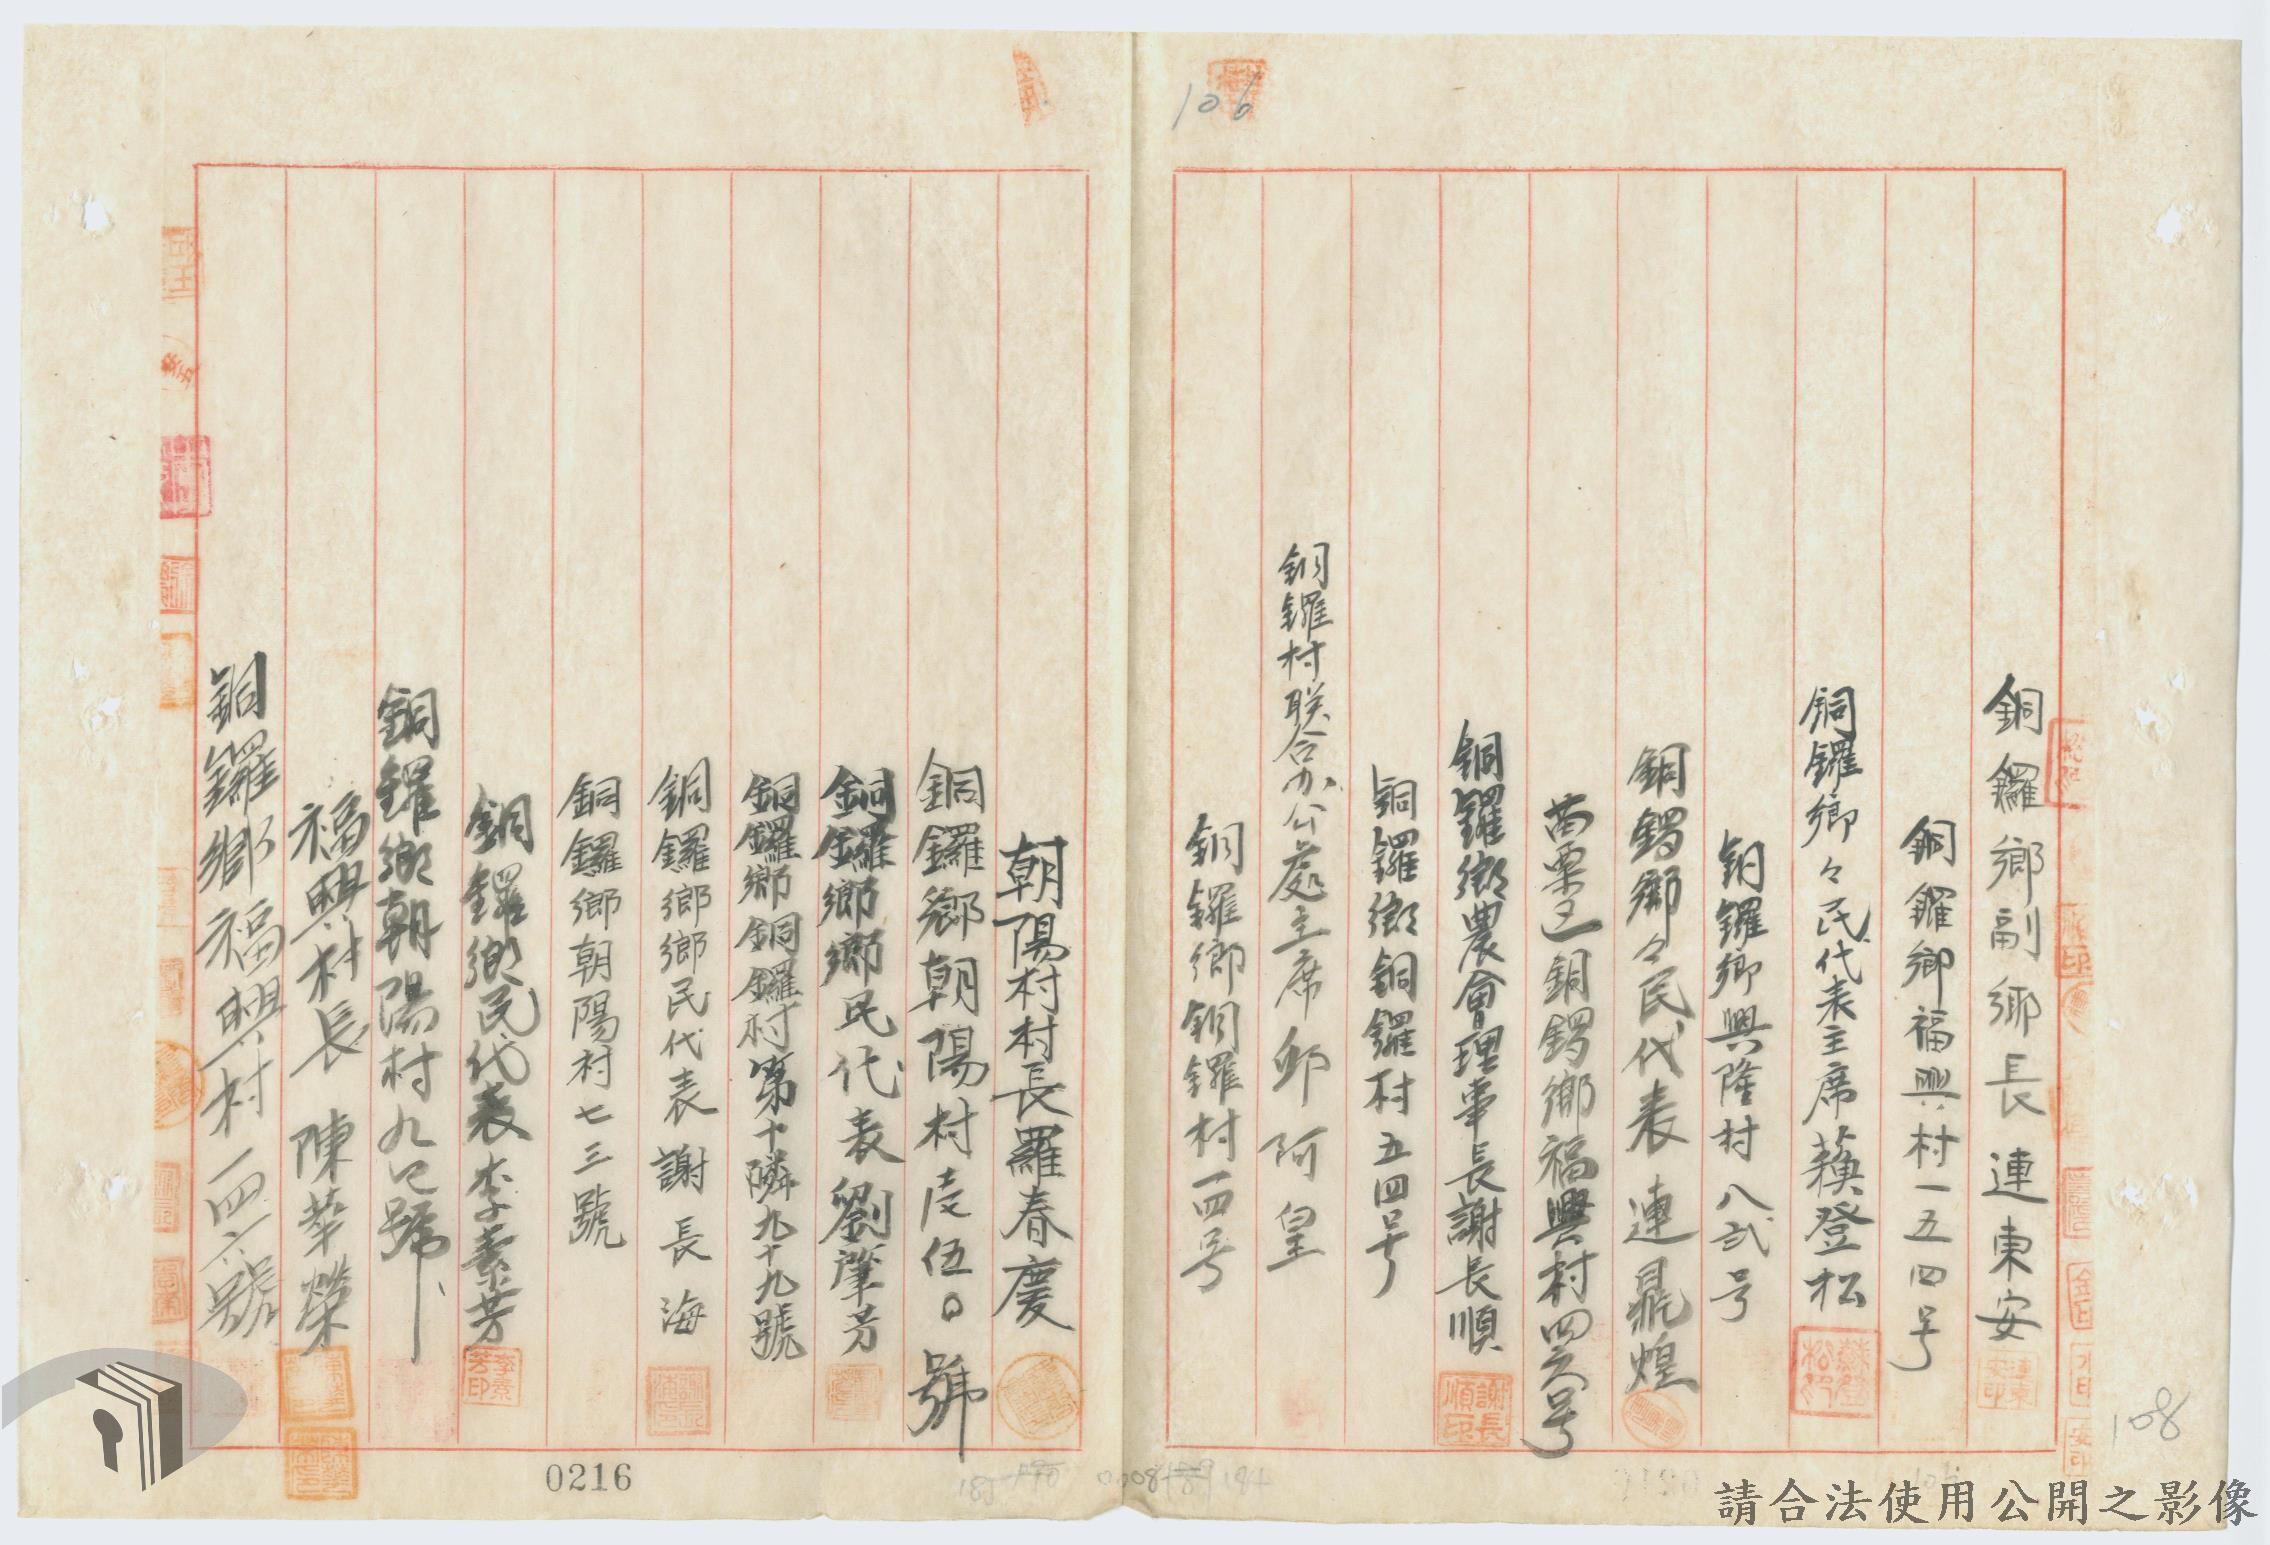 銅鑼鄉副鄉長連東安
銅鑼鄉福興村一五四号
銅鑼鄉々民代表主席蘓登松
銅鑼鄉興隆村八弍号
銅鑼鄉々民代表連鼎煌
苗栗区銅鑼鄉福興村四六号
銅鑼鄉農會理事長謝長順
銅鑼鄉銅鑼村五四号
銅鑼村联合办公處主席邱阿皇
銅鑼鄉銅鑼村一四号
朝陽村村長羅春慶
銅鑼鄉朝陽村伍〇號
銅鑼鄉鄉民代表劉肇芳
銅鑼鄉銅鑼村第十隣九十九號
銅鑼鄉鄉民代表謝長海
銅鑼鄉朝陽村七三號
銅鑼鄉民代表李素芳
銅鑼鄉朝陽村九號
福興村長陳華榮
銅鑼鄉福興村一四六號
106
108
0216
謝長順印
李素芳印
請合法使用公開之影像